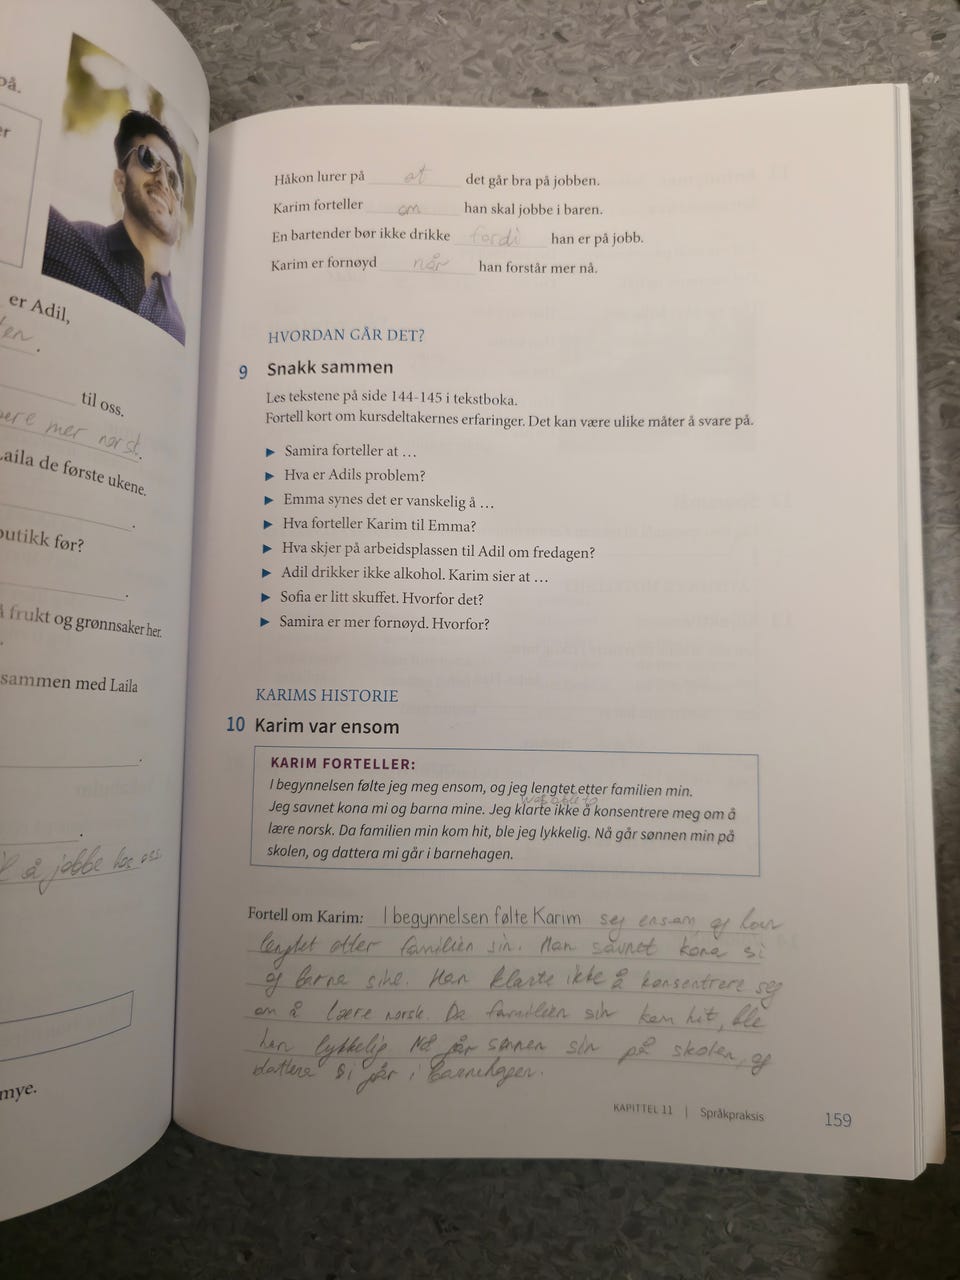 på.
er
er Adil,
ten.
til oss.
mer norsk.
Laila de første ukene.
.
butikk før?
.
frukt og grønnsaker her.
sammen med Laila
.
.
å jobbe hos oss
mye.
Håkon lurer på at det går bra på jobben.
Karim forteller om han skal jobbe i baren.
En bartender bør ikke drikke fordi han er på jobb.
Karim er fornøyd når han forstår mer nå.
HVORDAN GÅR DET?
9 Snakk sammen
Les tekstene på side 144-145 i tekstboka.
Fortell kort om kursdeltakernes erfaringer. Det kan være ulike måter å svare på.
► Samira forteller at …
► Hva er Adils problem?
► Emma synes det er vanskelig å …
► Hva forteller Karim til Emma?
► Hva skjer på arbeidsplassen til Adil om fredagen?
► Adil drikker ikke alkohol. Karim sier at …
► Sofia er litt skuffet. Hvorfor det?
► Samira er mer fornøyd. Hvorfor?
KARIMS HISTORIE
10 Karim var ensom
KARIM FORTELLER:
I begynnelsen følte jeg meg ensom, og jeg lengtet etter familien min.
was able to
Jeg savnet kona mi og barna mine. Jeg klarte ikke å konsentrere meg om å
lære norsk. Da familien min kom hit, ble jeg lykkelig. Nå går sønnen min på
skolen, og dattera mi går i barnehagen.
Fortell om Karim: I begynnelsen følte Karim seg ensam, og han
lengtet etter familien sin. Han savnet kona si
og barna sine. Han klarte ikke å konsentrere seg
om å lære norsk. Da familien sin kom hit, ble
han lykkelig Nå går sønnen sin på skolen, og
dattera si går i barnehagen.
KAPITTEL 11 | Språkpraksis 159